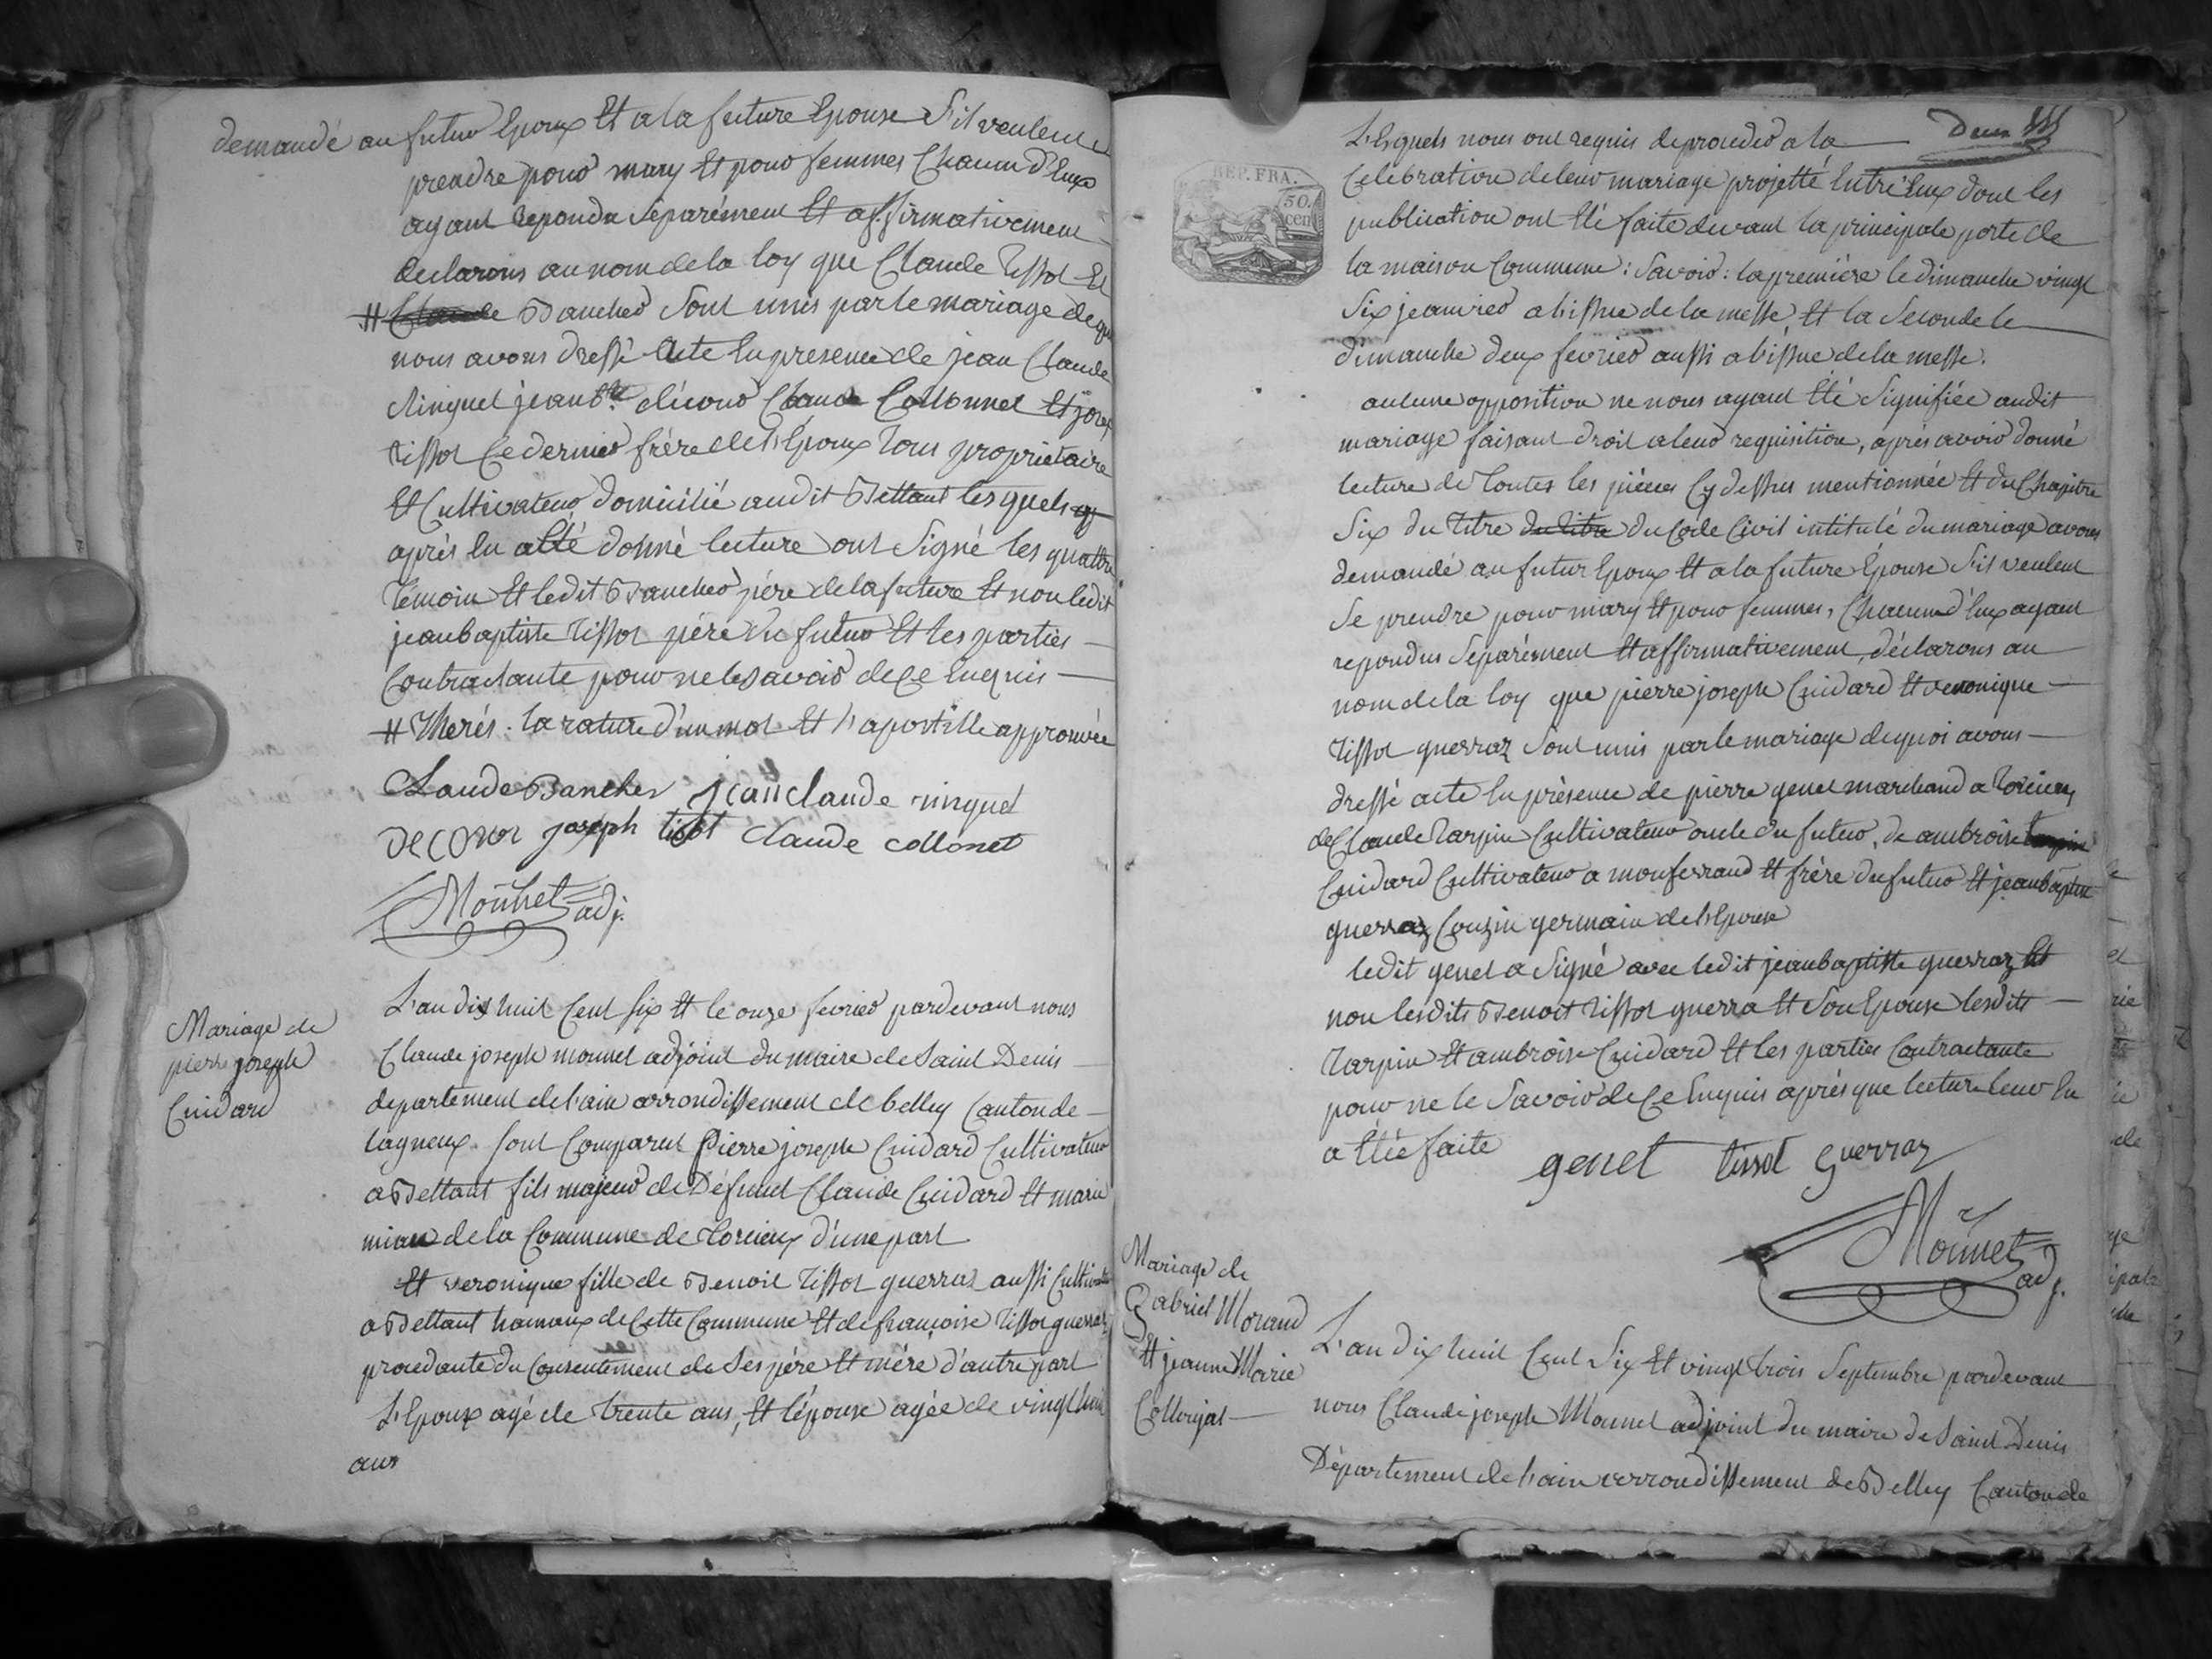 demandé au futur Epoux Et a la future Epouse S'il veulent
prendre pour mary Et pour femmes Chacun d'Eux
ayant repondu Séparément Et affirmativement
declarons au nom de la loy que Claude Tissot Et
# Claude Bancher Sont unis par le mariage de qu
nous avons dressé Acte En presence de jean Claude
ninguet jean bte décour Claude Collonnet Et josep
tissot Ce dernier frère de l'Epoux Tous propriétaire
Et Cultivateur domicilié audit Bettant les quels
après En avoir donné lecture ont Signé les quattre
Temoin Et ledit Bancher père de la future Et non ledit
jean baptiste Tissot père du futur Et les parties
Contractante pour ne le savoir de ce Enquis
# Therés. la rature d'un mot Et l'apostille approuvée
Claude Bancher jean claude ninguet
decour joseph tisot claude collonet
Monnet adj.
Mariage de
pierre joseph
Cuidard
L'an dix huit Cent Six Et le onze fevrier pardevant nous
Claude joseph monnet adjoint du maire de Saint Denis
departement de l'ain arrondissement de belley Canton de
lagneux. Sont Comparut Pierre joseph Cuidard Cultivateur
a Bettant fils majeur de Défunt Claude Cuidard Et marie
de la Commune de Torcieux d'une part
Et veronique fille de Benoit Tissot guerraz aussi Cultivat
a Bettant hamaux de Cette Commune Et de françoise Tissot guerraz
procedante du Consentement de Ses père Et mére d'autre part
L'Epoux agé de trente ans, Et l'épouse agée de vingt huit
ans
Deux
REP. FRA.
50.
cent
Lesquels nous ont requis de proceder a la
Célébration de leur mariage projetté Entre Eux dont les
publication ont Eté faite devant la principale porte de
la maison Commune: Savoir: la première le dimanche vingt
Six jeanvier a l'issue de la messe, Et la Seconde le
dimanche deux fevrier aussi a l'issue de la messe.
aucune opposition ne nous ayant Eté Signifiée audit
mariage faisant droit a leur requisition, après avoir donné
lecture de Toutes les pièces Cy dessus mentionnée Et du Chapitre
Six du Titre du titre du Code Civil intitulé du mariage avons
demandé au futur Epoux Et a la future Epouse S'il veulent
Se prendre pour mary Et pour femmes, Chacun d'Eux ayant
repondus Séparément Et affirmativement, déclarons au
nom de la loy que pierre joseph Cuidard Et veronique
Tissot guerraz Sont unis par le mariage de quoi avons
dressé acte En présence de pierre genet marchand a Torcieux
de Claude Tarpin Cultivateur oncle du futur, de ambroise
Cuidard Cultivateur a monferrand Et frère du futur Et jean baptiste
guerraz Couzin germain de l'Epouse
ledit genet a Signé avec ledit jean baptiste guerraz Et
non lesdits Benoit Tissot guerra Et Son Epouse lesdits
Tarpin Et ambroise Cuidard Et les parties Contractante
pour ne le Savoir de Ce Enquis après que lecture leur En
a Etée faite
genet tissot guerraz
Monnet adj.
Mariage de
Gabriel Morand
Et jeanne Marie
Collonjat
L'an dix huit Cent Six Et vingt trois Septembre pardevant
nous Claude joseph Monnet adjoint du maire de Saint Denis
Département de l'ain arrondissement de Belley Canton de